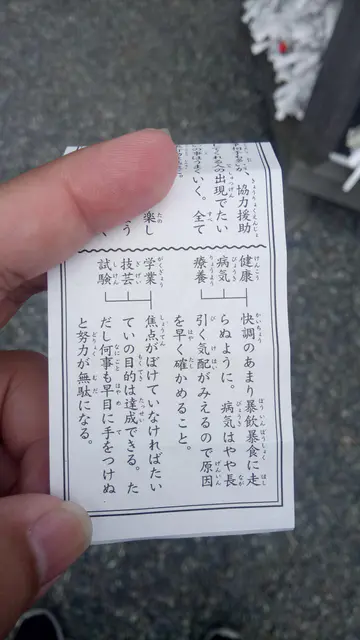 が、協力援助
くれる人の出現でたい
いく。全て
楽し
健康
病気
療養
快調のあまり暴飲暴食に走
らぬように。病気はやや長
引く気配がみえるので原因
を早く確かめること。
学業
技芸
試験
焦点がぼけていなければたい
ていの目的は達成できる。た
だし何事も早目に手をつけぬ
と努力が無駄になる。